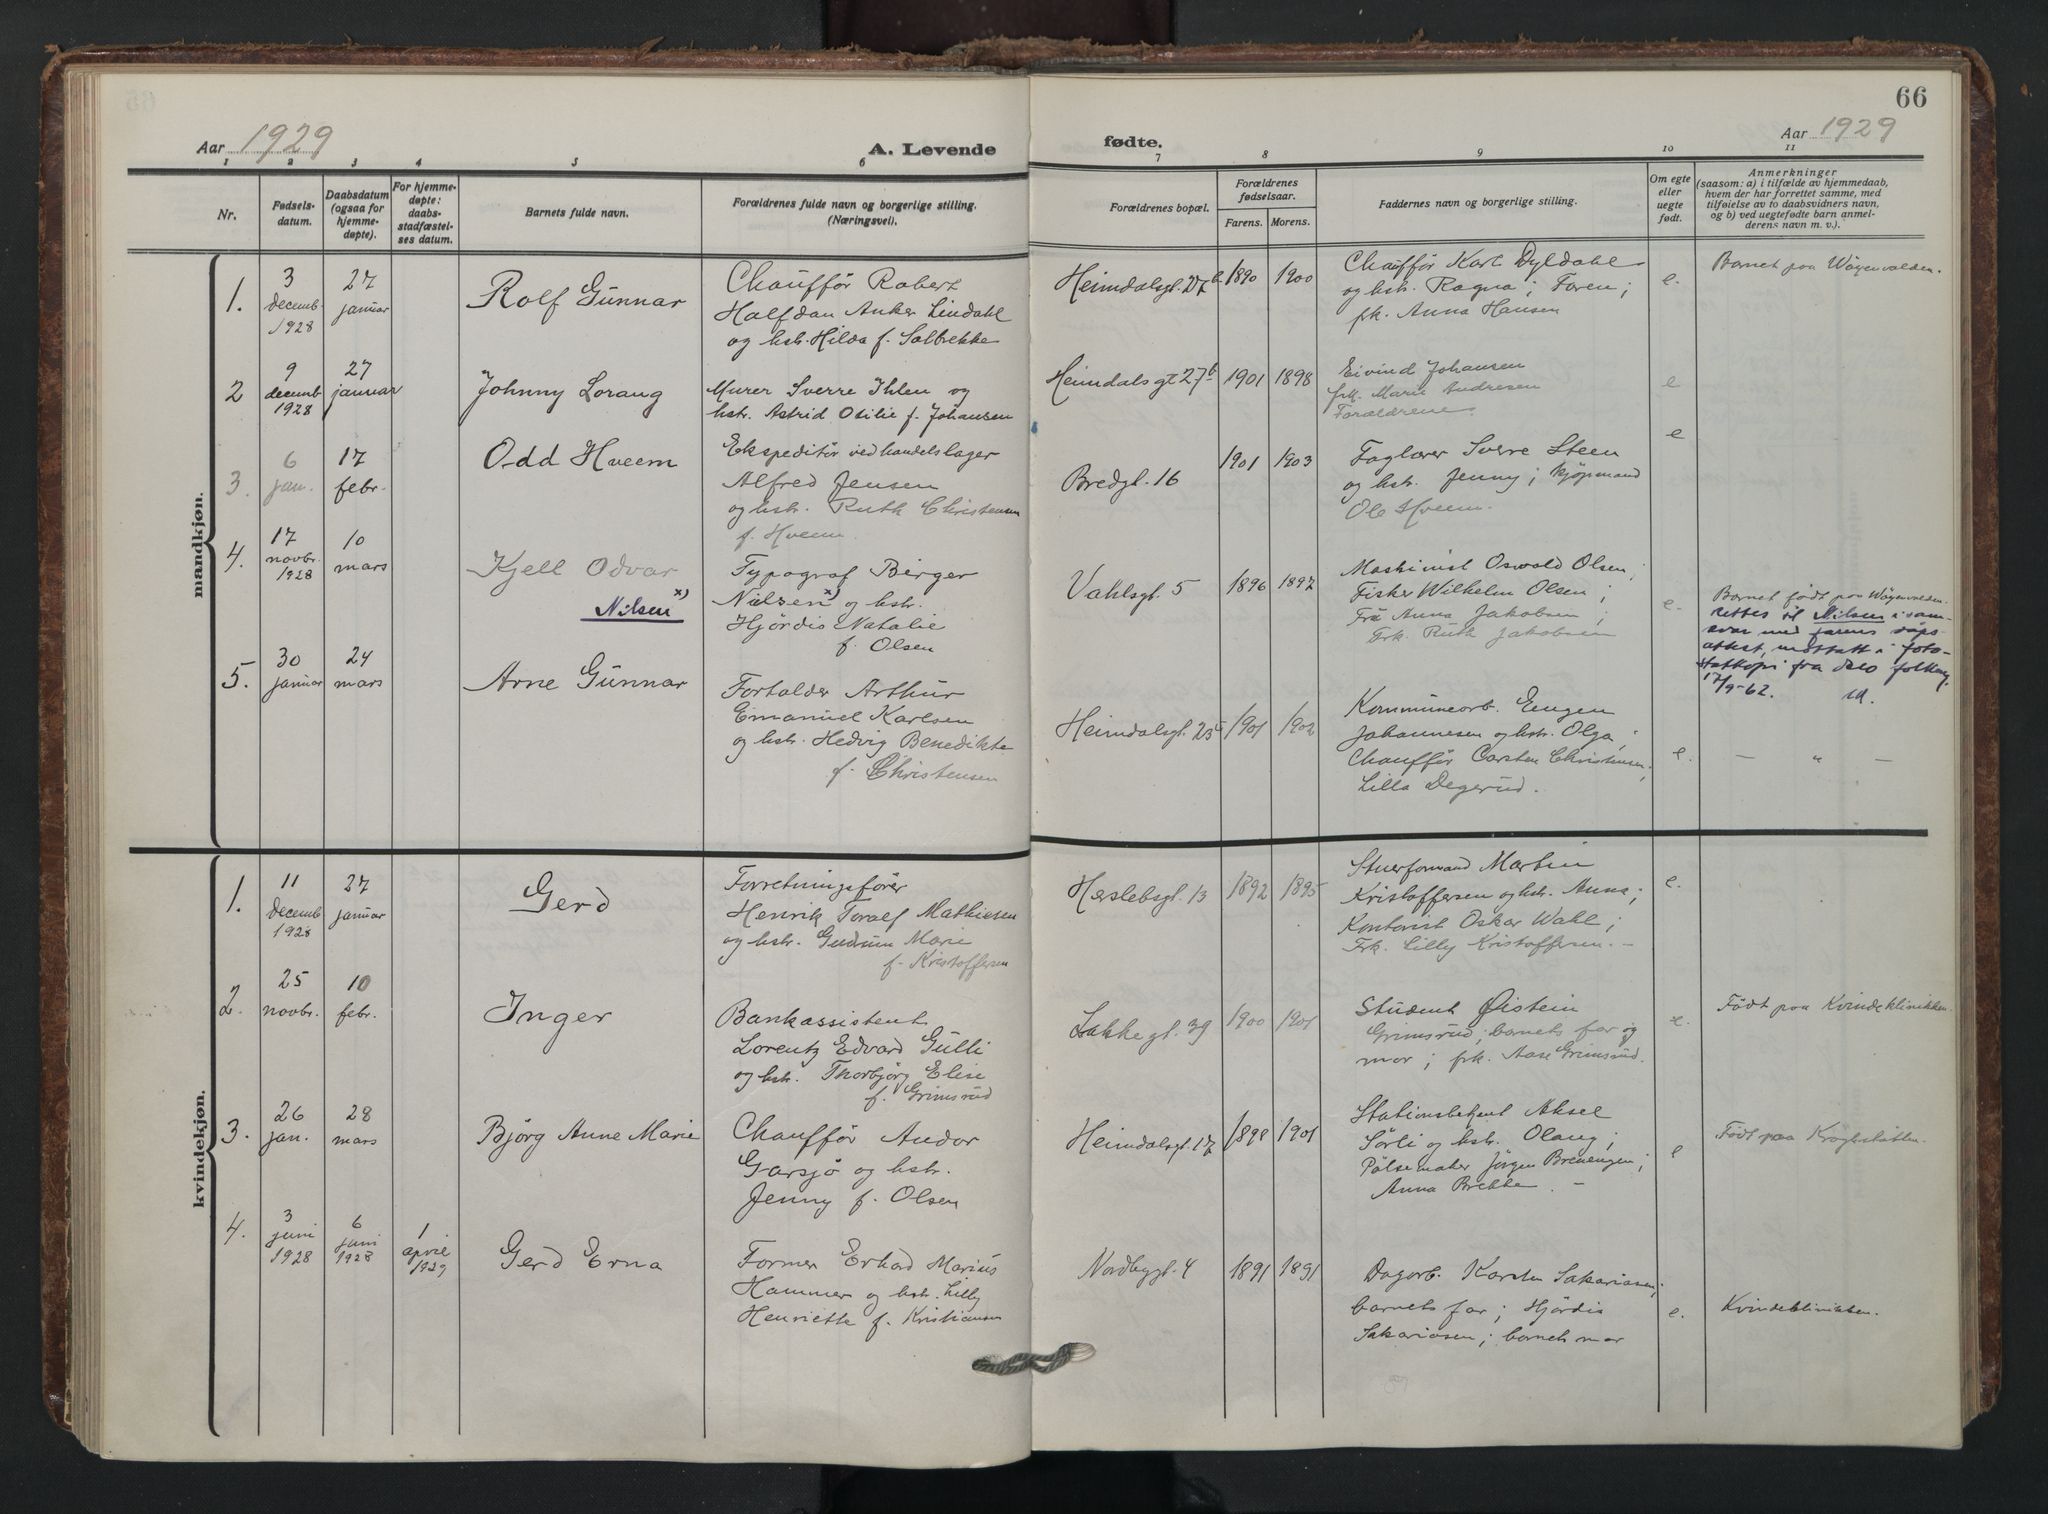 66
Aar 1929
A. Levende
fødte.
Aar 1929
1 2 3 4 5 6 7 8 9 10 11
Nr.
Fødsels-
datum.
Daabsdatum
(ogsaa for
hjemme-
døpte).
For hjemme-
døpte:
daabs-
stadfæstel-
ses datum.
Barnets fulde navn.
Forældrenes fulde navn og borgerlige stilling.
(Næringsvei).
Forældrenes bopæl.
Forældrenes
fødselsaar.
Farens. Morens.
Faddernes navn og borgerlige stilling.
Om egte
eller
uegte
født.
Anmerkninger
(saasom: a) i tilfælde av hjemmedaab,
hvem der har forrettet samme, med
tilføielse av to daabsvidners navn,
og b) ved uegtefødte barn anmel-
derens navn m. v.).
mandkjøn.
1.
3
decemb.
1928
27
januar
Rolf Gunnar
Chauffør Robert
Halfdan Anker Lindahl
og hstr. Hilda f. Solbrekke
Heimdalsgt. 27b
1890
1900
Chauffør Karl Dyldahl
og hstr. Ragna; Faren;
frk. Anna Hansen
e.
Barnet paa
2
9
decemb
1928
27
januar
Johnny Lorang
Murer Sverre Ihlen og
hstr. Astrid Otilie f. Johansen
Heimdalsgt 27b
1901
1898
Eivind Johansen
frk. Marie Andresen
Forældrene
e
3.
6
jan.
17
febr.
Odd Hveem
Ekspeditør ved handelslager
Alfred Jensen
og hstr. Ruth Christensen
f. Hveem
Bredgt. 16
1901
1903
Faglærer Sverre Steen
og hstr. Jenny; kjøpmand
Ole Hveem.
e
4.
17
novbr.
1928
10
mars
Kjell Odvar
Nilsen x)
Typograf Birger
Nielsen x) og hstr.
Hjørdis Natalie
f. Olsen
Vahlsgt. 5
1896
1897
Maskinist Oswald Olsen;
Fisker Wilhelm Olsen;
Fru Anna Jakobsen;
Frk. Ruth Jakobsen
e.
Barnet født paa
rettes til Nilsen i sam-
svar med farens dåps-
attest, mottatt i foto-
statkopi fra Oslo folkereg.
17/9-62.
5.
30
januar
24
mars
Arne Gunnar
Forhalder Arthur
Emanuel Karlsen
og hstr. Hedvig Benedikte
f. Christensen
Heimdalsgt. 25
1901
1902
Kommunearb. Eugen
Johannesen og hstr. Olga;
Chauffør Carsten Christensen;
Lilla Degerud.
e.
— " —
kvindekjøn.
1.
11
decemb
1928
27
januar
Gerd
Forretningsfører
Henrik Toralf Mathiesen
og hstr. Gudrun Marie
f. Kristoffersen
Herslebsgt. 13
1892
1895
Stuerformand Martin
Kristoffersen og hstr. Anna;
Kontorist Oskar Wahl;
Frk. Lilly Kristoffersen. -
e.
2.
25
novbr.
10
febr.
Inger
Bankassistent
Lorentz Edvard Gulli
og hstr. Thorbjørg Elise
f. Grimsrud
Lakkegt. 39
1900
1901
Student Øistein
Grimsrud; barnets far og
mor; frk. Aase Grimsrud.
e.
Født paa Kvindeklinikken.
3.
26
jan.
28
mars
Bjørg Anne Marie
Chauffør Andor
Garsjø og hstr.
Jenny f. Olsen
Heimdalsgt. 17
1898
1901
Stationsbetjent Aksel
Sørli og hstr. Olaug;
Pølsemaker Jørgen Brenengen;
Anna Brekke. -
e
Født paa
4.
3
juni
1928
6
juni
1928
1
april
1929
Gerd Erna
Former Erhard Marius
Hammer og hstr. Lilly
Henriette f. Kristiansen
Nordbygt. 4
1891
1891
Dagarb. Karsten Sakariasen;
barnets far; Hjørdis
Sakariasen; barnets mor
e.
Kvindeklinikken.